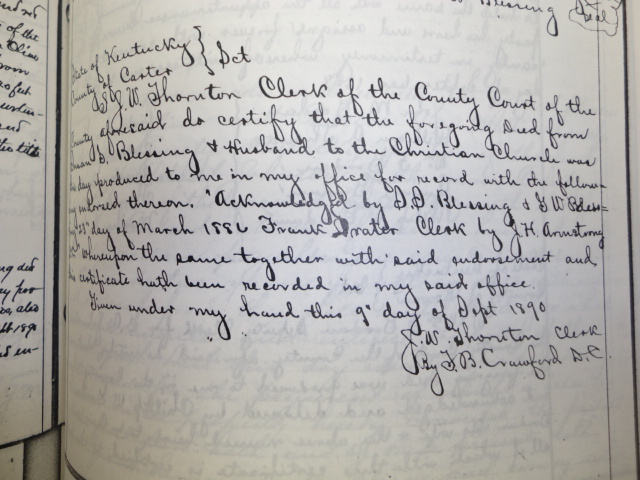 Blessing Seal
State of Kentucky } Sct
County of Carter
I J. W. Thornton Clerk of the County Court of the
County aforesaid do certify that the foregoing Deed from
D. Blessing & Husband to the Christian Church was
day produced to me in my office for record with the follow-
endorsed thereon. "Acknowledged by D. D. Blessing & G W Bless-
day of March 1886 Frank Prater Clerk by J. H. Armstrong
Whereupon the same together with said endorsement and
certificate hath been recorded in my said office.
Given under my hand this 9" day of Sept 1890
J. W. Thornton Clerk
By F. B. Crawford D. C